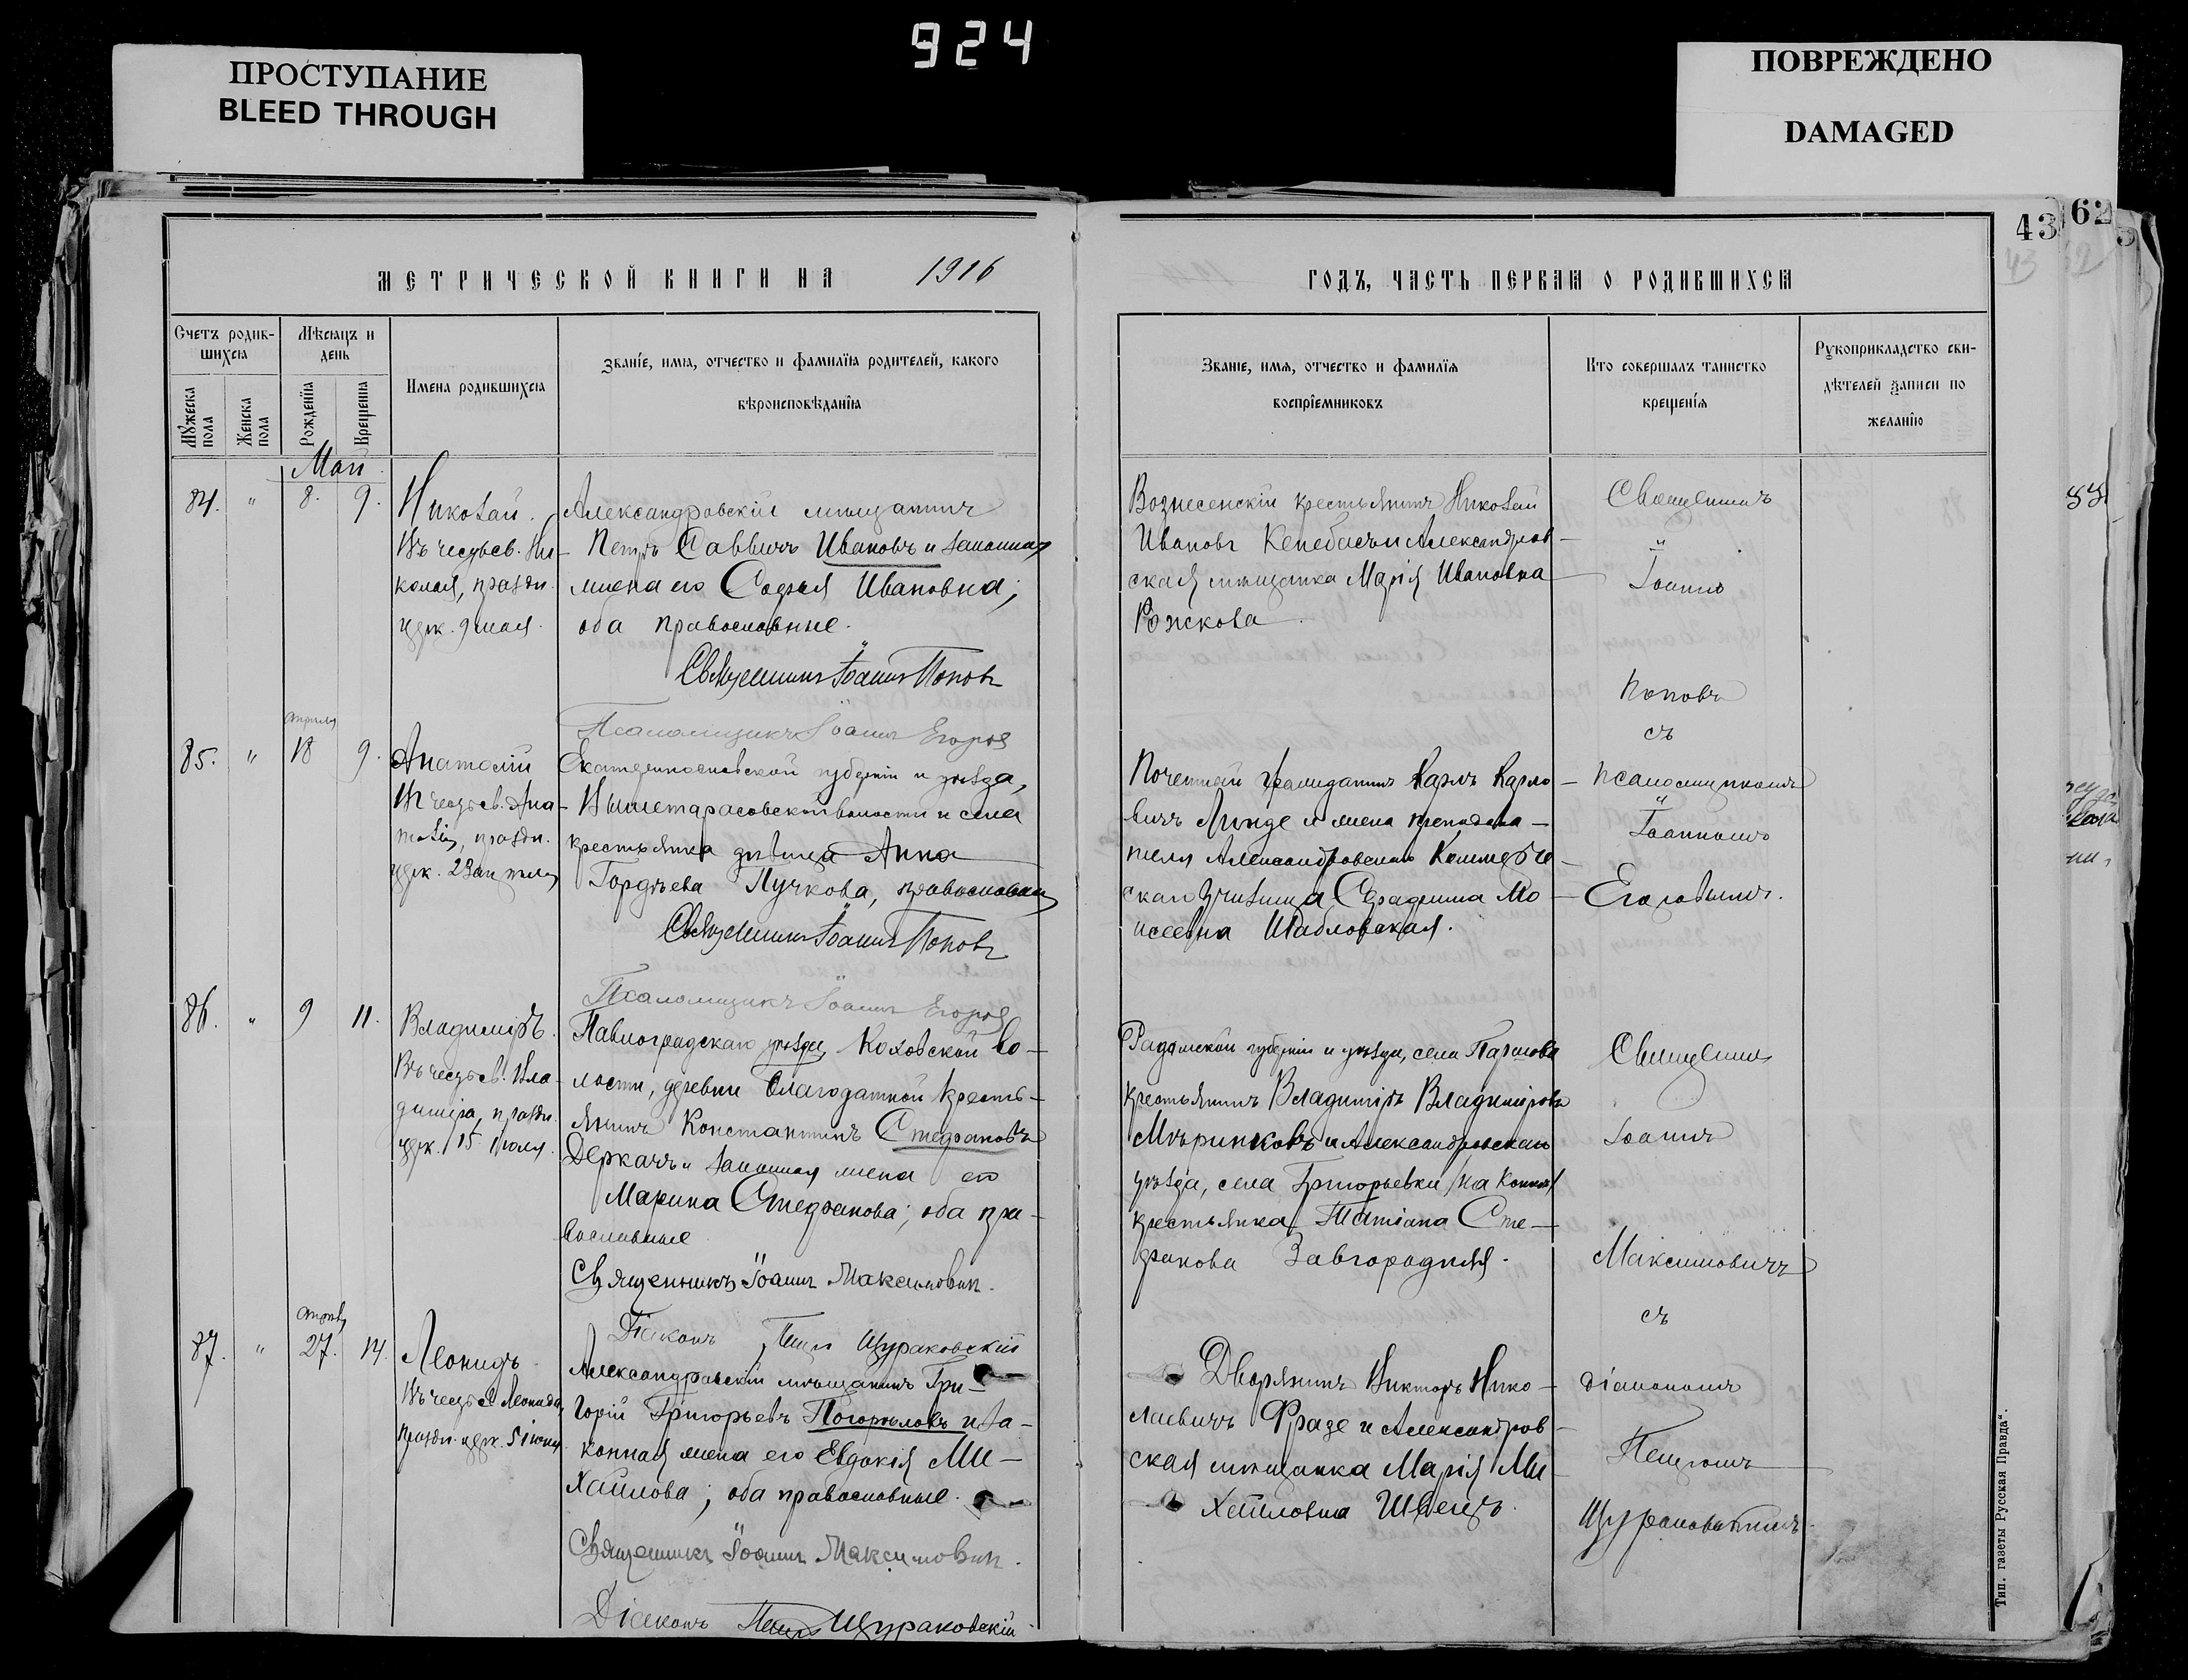 924
ПРОСТУПАНИЕ
BLEED THROUGH
ПОВРЕЖДЕНО
DAMAGED
43
62
МЕТРИЧЕСКОЙ КНИГИ НА 1916
Счетъ родив-
шихся
Мѣсяцъ и
день
Имена родившихся
Званіе, имя, отчество и фамилія родителей, какого
вѣроисповѣданія
Мужеска
пола
Женска
пола
Рожденія
Крещенія
Май
84. " 8. 9.
Николай.
Въ честь св. Ни-
колая, праздн.
црк. 9 мая.
Александровскій мѣщанинъ
Петръ Саввичъ Ивановъ и законная
жена его Софья Ивановна;
оба православные.
Священникъ Іоаннъ Поповъ
Псаломщикъ Іоаннъ Егоровъ
апрѣля
85. " 18 9.
Анатолій
Въ честь св. Ана-
толія, праздн.
црк. 23 апрѣля
Екатеринославской губерніи и уѣзда,
Вышетарасовской волости и села
крестьянка дѣвица Анна
Гордѣева Пучкова, православная
Священникъ Іоаннъ Поповъ
Псаломщикъ Іоаннъ Егоровъ
86. " 9 11.
Владиміръ.
Въ честь св. Вла-
диміра, праздн.
црк. 15 іюля.
Павлоградскаго уѣзда, Коховской во-
лости, деревни Благодатной кресть-
янинъ Константинъ Стефановъ
Деркачъ и законная жена его
Марина Стефанова; оба пра-
вославные
Священникъ Іоаннъ Максимович.
Діаконъ Петръ Щураковскій
апрѣл
87. " 27. 14.
Леонидъ
Въ честь св. Леонида,
праздн. црк. 5 іюня
Александровскій мѣщанинъ Гри-
горій Григорьевъ Погорѣловъ и за-
конная жена его Евдокія Ми-
хайлова; оба православные.
Священникъ Іоаннъ Максимович.
Діаконъ Петръ Щураковскій
ГОДЪ, ЧАСТЬ ПЕРВАЯ О РОДИВШИХСЯ
Званіе, имя, отчество и фамилія
воспріемниковъ
Кто совершалъ таинство
крещенія
Рукоприкладство сви-
дѣтелей записи по
желанію
Вознесенскій крестьянинъ Николай
Ивановъ и Александров-
ская мѣщанка Марія Ивановна
Рожкова.
Священникъ
Іоаннъ
Поповъ
съ
Почетный гражданинъ Карлъ Карло-
вичъ Линде и жена преподава-
теля Александровскаго Коммерче-
скаго училища Серафима Мо-
исеевна Шабловская.
псаломщикомъ
Іоанномъ
Егоровымъ.
Радомской губерніи и уѣзда, села
крестьянинъ Владиміръ Владиміровъ
Мѣринковъ и Александровскаго
уѣзда, села Григорьевки
крестьянка Татіана Сте-
фанова Завгородняя.
Священникъ
Іоаннъ
Максимовичъ
съ
Дворянинъ Викторъ Нико-
лаевичъ Фразе и Александров-
ская мѣщанка Марія Ми-
хайловна Швецъ.
діакономъ
Петромъ
Щураковскимъ.
Тип. газеты „Русская Правда“.